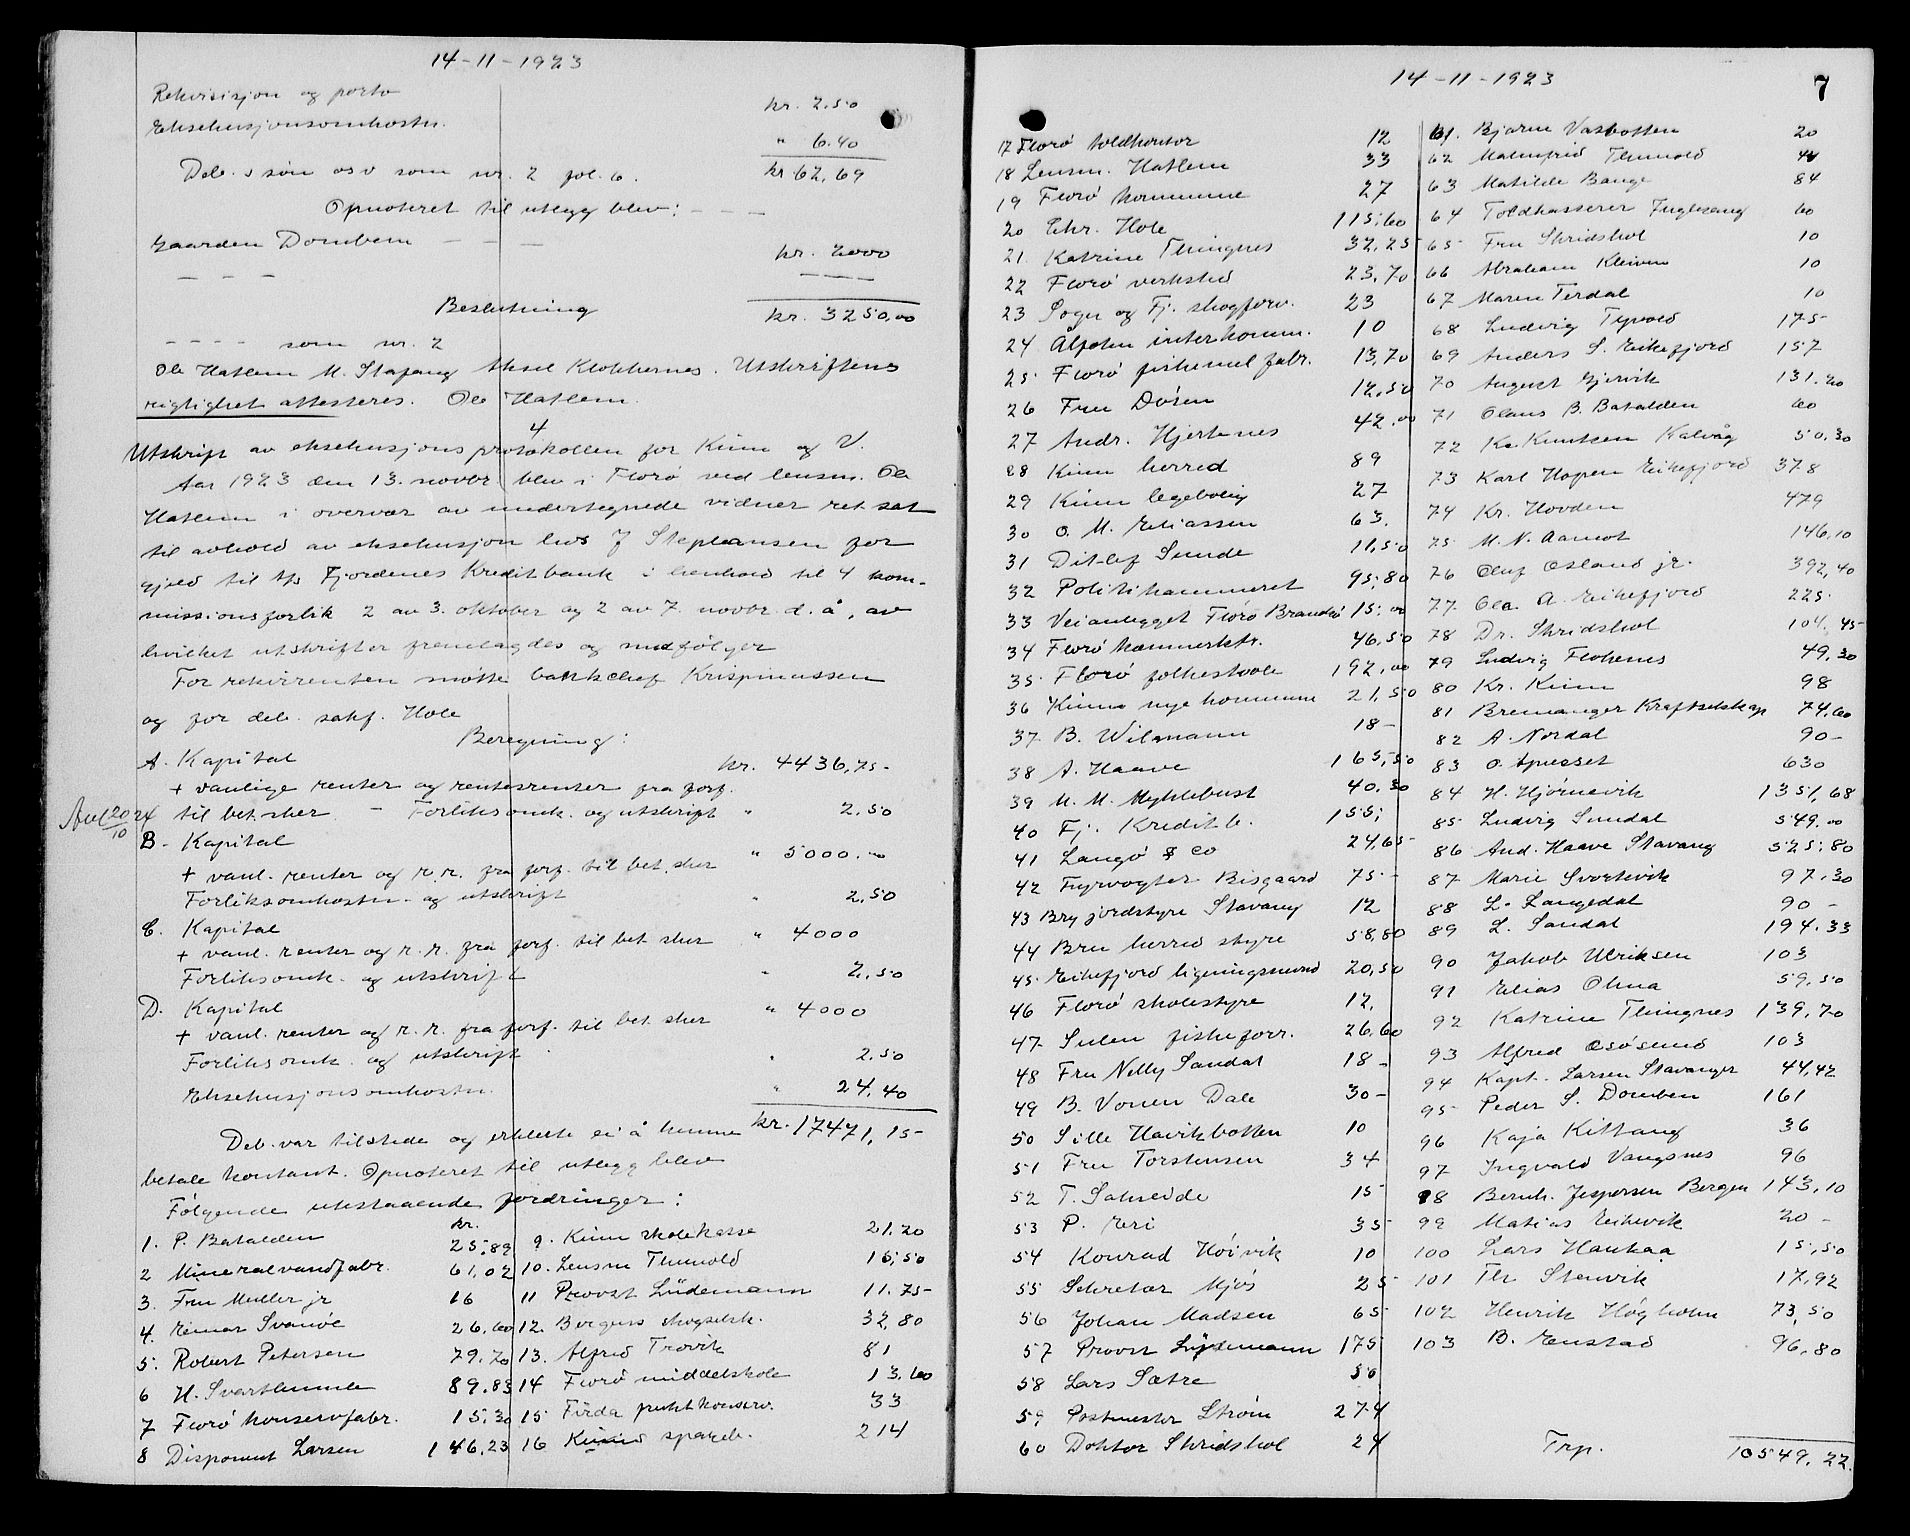 14-11-1923
Rekvisisjon og porto kr. 2.50
Eksekusjonsomkostn. " 6.40
kr 62,69
Deb. s søn osv som nr. 2 fol. 6.
Opnoteret til utlegg blev: - - -
Gaarden Domben - - - kr. 2000
- - - - - -
kr. 3250,00
Beslutning
- - - - som nr. 2
Ole Hatlem M. Stafang Aksel Klokkernes. Utskriftens
rigtighet attesteres. Ole Hatlem.
4
Utskrift av eksekusjonsprotokollen for Kinn og V.
Aar 1923 den 13. novbr blev i Florø ved lensm. Ole
Hatlem i overvær av undertegnede vidner ret sat
til avhold av eksekusjon hos J Stephansen for
gjeld til A/s Fjordenes Kreditbank i henhold til 4 kom-
missionsforlik 2 av 3. oktober og 2 av 7. novbr. d. å, av
hvilket utskrifter fremlagdes og medfølger
For rekvirenten møtte bankchef Krispinussen
og for deb. sakf. Hole
Beregning:
A. Kapital kr. 4436,75-
+ vanlige renter og rentesrenter fra forf.
til bet. sker - Forliksomk. og utskrift " 2.50
Avl 20/10 24
B. Kapital " 5000.00
+ vanl. renter og r.r. fra forf. til bet. sker
Forliksomkostn. og utskrift " 2.50
C. Kapital " 4000
+ vanl. renter og r.r. fra forf. til bet. sker
Forliksomk. og utskrift " 2.50
D. Kapital " 4000
+ vanl. renter og r.r. fra forf. til bet. sker
Forliksomk. og utskrift " 2.50
Eksekusjonsomkostn. " 24,40
kr. 17471,15-
Deb. var tilstede og erklærte ei å kunne
betale kontant. Opnoteret til utlegg blev
Følgende utestaaende fordringer:
kr.
1. P. Batalden 25,89
2 Mineralvandfabr. 61,02
3. Fru Muller jr 16
4. Reimar Svanøe 26,60
5. Robert Petersen 79.70
6 H. Svarthumle 89.83
7 Florø konservfabr. 15,30
8 Disponent Larsen 146,23
9. Kinn skolekasse 21.20
10. Lensm Thunold 16,50
11 Provst Lüdemann 11.75-
12. Bergens skogselsk. 32,80
13. Alfred Trovik 81
14 Florø middelskole 13.60
15 Firda fruktkonserv. 33
16 Kinns spareb. 214
14-11-1923
7
17 Florø toldkontor 12
18 Lensm. Hatlem 33
19 Florø kommune 27
20 Chr. Hole 115,60
21. Katrine Thingnes 32,25
22 Florø verksted 23,70
23 Sogn og Fj. skogforv. 23
24 Ålfoten interkomm. 10
25 Florø fiskemel fabr. 13,70
26 Fru Døsen 12,50
27 Andr. Hjertenes 42.00
28 Kinn herred 89
29 Kinn legebolig 27
30 O. M. Eliassen 63.
31 Ditlef Sunde 11,50
32 Politikammeret 95,80
33 Veianlegget Florø Brandsø 15,00
34 Florø kæmnerktr. 46.50
35. Florø folkeskole 192,00
36 Kinns nye kommune 21,50
37. B. Wilmann 18-
38 A. Haave 165,50
39 M. M. Myklebust 40.30
40 Fj. Kreditb. 155,
41 Langø & Co 24,65
42 Fyrvogter Bisgaard 75-
43 Bry jordstyre Stavang 12
44 Bru herred styre 58,80
45 Eikefjord ligningsnævnd 20,50
46 Florø skolestyre 12,
47 Sulen fiskeforr. 26.60
48 Fru Nelly Sandal 18-
49 B. Vonen Dale 30-
50 Sille Havikbotten 10
51 Fru Torstensen 34
52 T. Solsidde 15
53 P. Eri 35
54 Konrad Høivik 10
55 Sekretær Mjøs 25
56 Johan Madsen 65
57 Provst Lüdemann 175
58 Lars Sætre 50
59 Postmester Strøm 274
60 Doktor Skridshol 24
61. Bjarne Vasbotten 20
62 Malmfrid Thunold 44
63 Matilde Bauge 84
64 Toldkasserer Fuglesang 60
65 Fru Skridshol 10
66 Abraham Kleiven 10
67 Maren Terdal 10
68 Ludvig Typold 175
69 Anders S. Eikefjord 157
70 August Gjervik 131.20
71 Olaus B. Batalden 60
72 Kr. Knutsen Kalvåg 50.30
73 Karl Hopen Eikefjord 378
74 Kr. Hovden 479
75 M. N. Aamot 146,10
76 Oluf Osland jr. 392,40
77 Ole A. Eikefjord 225.
78 Dr. Skridshol 104,45
79 Ludvig Flokenes 49,30
80 Kr. Kinn 98
81 Bremanger Kraftselskap 74,60
82 A. Nordal 90-
83 O. Apesset 630
84 H. Hjørnevik 1351,68
85 Ludvig Sundal 549.00
86 And. Haave Stavang 525,80
87 Marie Svortevik 97.30
88 L. Langedal 90-
89 L. Sandal 194.33
90 Jakob Ulriksen 103
91 Elias Olma 59,50
92 Katrine Thingnes 139,70
93 Alfred Osøsund 103
94 Kapt. Larsen Stavanger 44,42
95 Peder S. Domben 161
96 Kaja Kittang 36
97 Ingvald Vangsnes 96
98 Bernh. Jespersen Bergen 143,10
99 Matias Eikevik 20-
100 Lars Haukaa 15,50
101 Th Stenvik 17,92
102 Henrik Høgholm 73,50
103 B. Enstad 96,80
Trp. 10549,22.